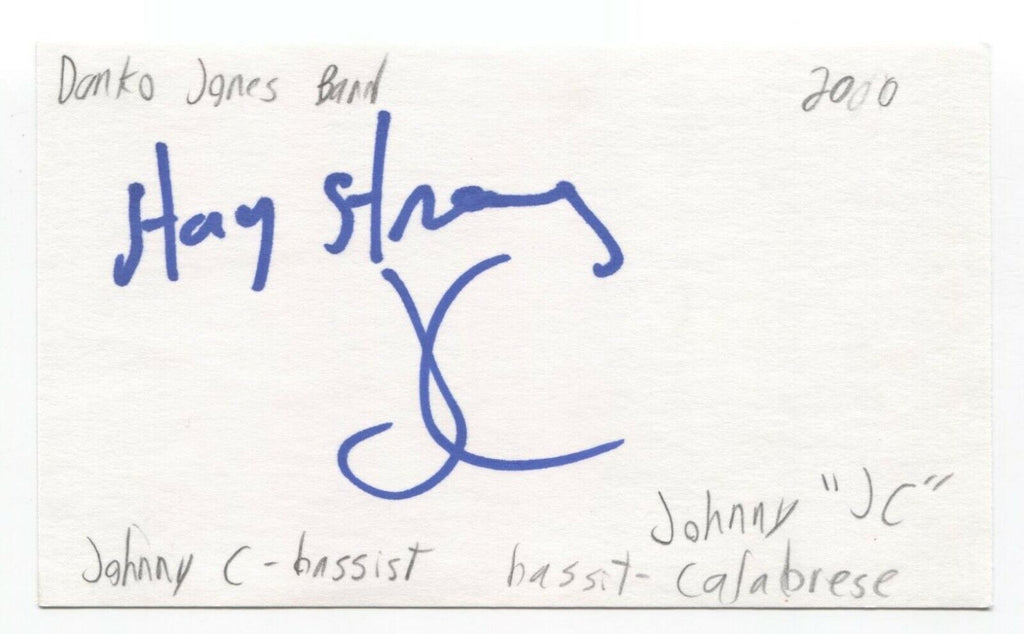 Danko Jones Band 2000
Stay Strong
JC
Johnny "JC"
Johnny C - bassist bassit - Calabrese